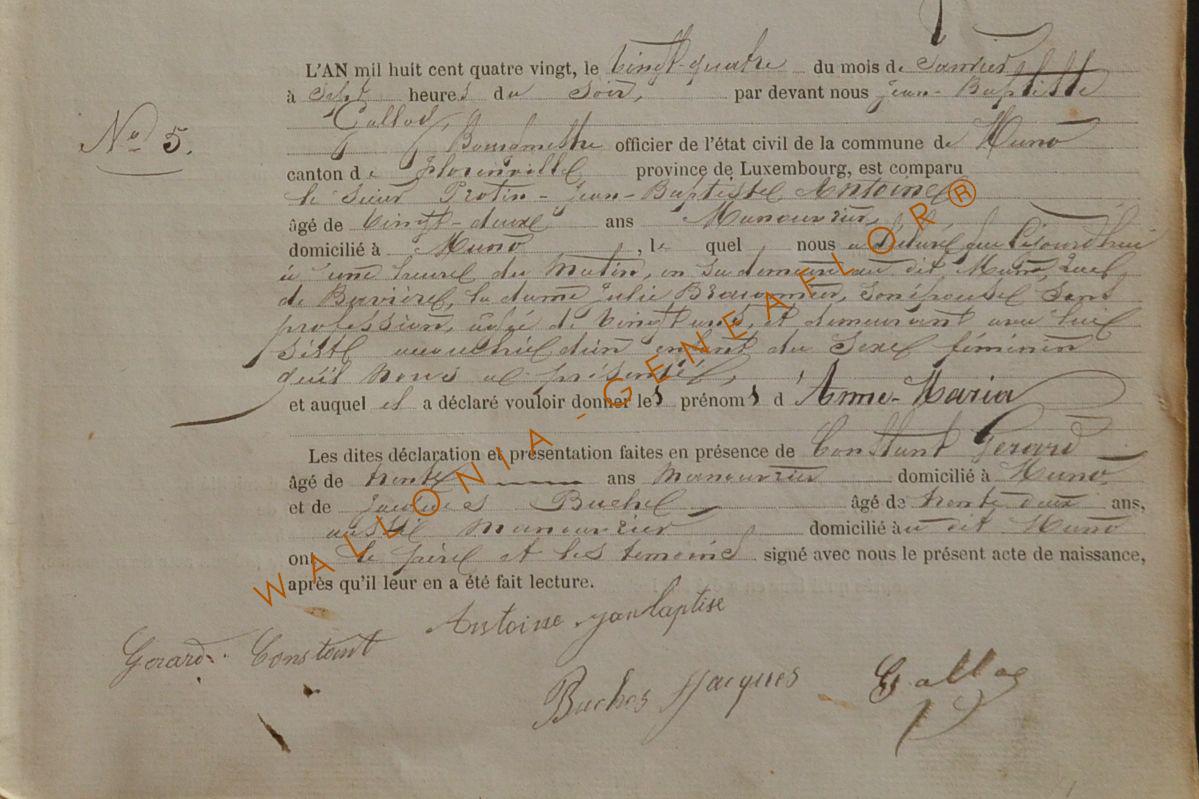 L'AN mil huit cent quatre vingt, le Vingt-quatre du mois de Janvier
à Sept heures du Soir, par devant nous Jean-Baptiste
Nº 5.
Bourgmestre officier de l'état civil de la commune de Muno
canton de Florenville province de Luxembourg, est comparu
le Sieur Jean-Baptiste Antoine
âgé de Vingt-deux ans Manouvrier
domicilié à Muno, lequel nous a déclaré que Cejourdhui
à une heure du Matin, en Sa demeure au dit Muno,
de la dame Julie Son épouse Sans
profession, âgée de Vingt ans, et demeurant avec lui
S'est accouchée d'un enfant du Sexe féminin
qu'il Nous a présenté,
et auquel il a déclaré vouloir donner les prénoms d'Anne-Maria
Les dites déclaration et présentation faites en présence de Constant Gerard
âgé de trente ans Manouvrier domicilié à Muno
et de Jacques Buchet âgé de trente deux ans,
aussi Manouvrier domicilié au dit Muno
ont le père et les temoins signé avec nous le présent acte de naissance,
après qu'il leur en a été fait lecture.
Antoine
Gerard Constant
Jacques
WALLONIA - GENEAFLOR®